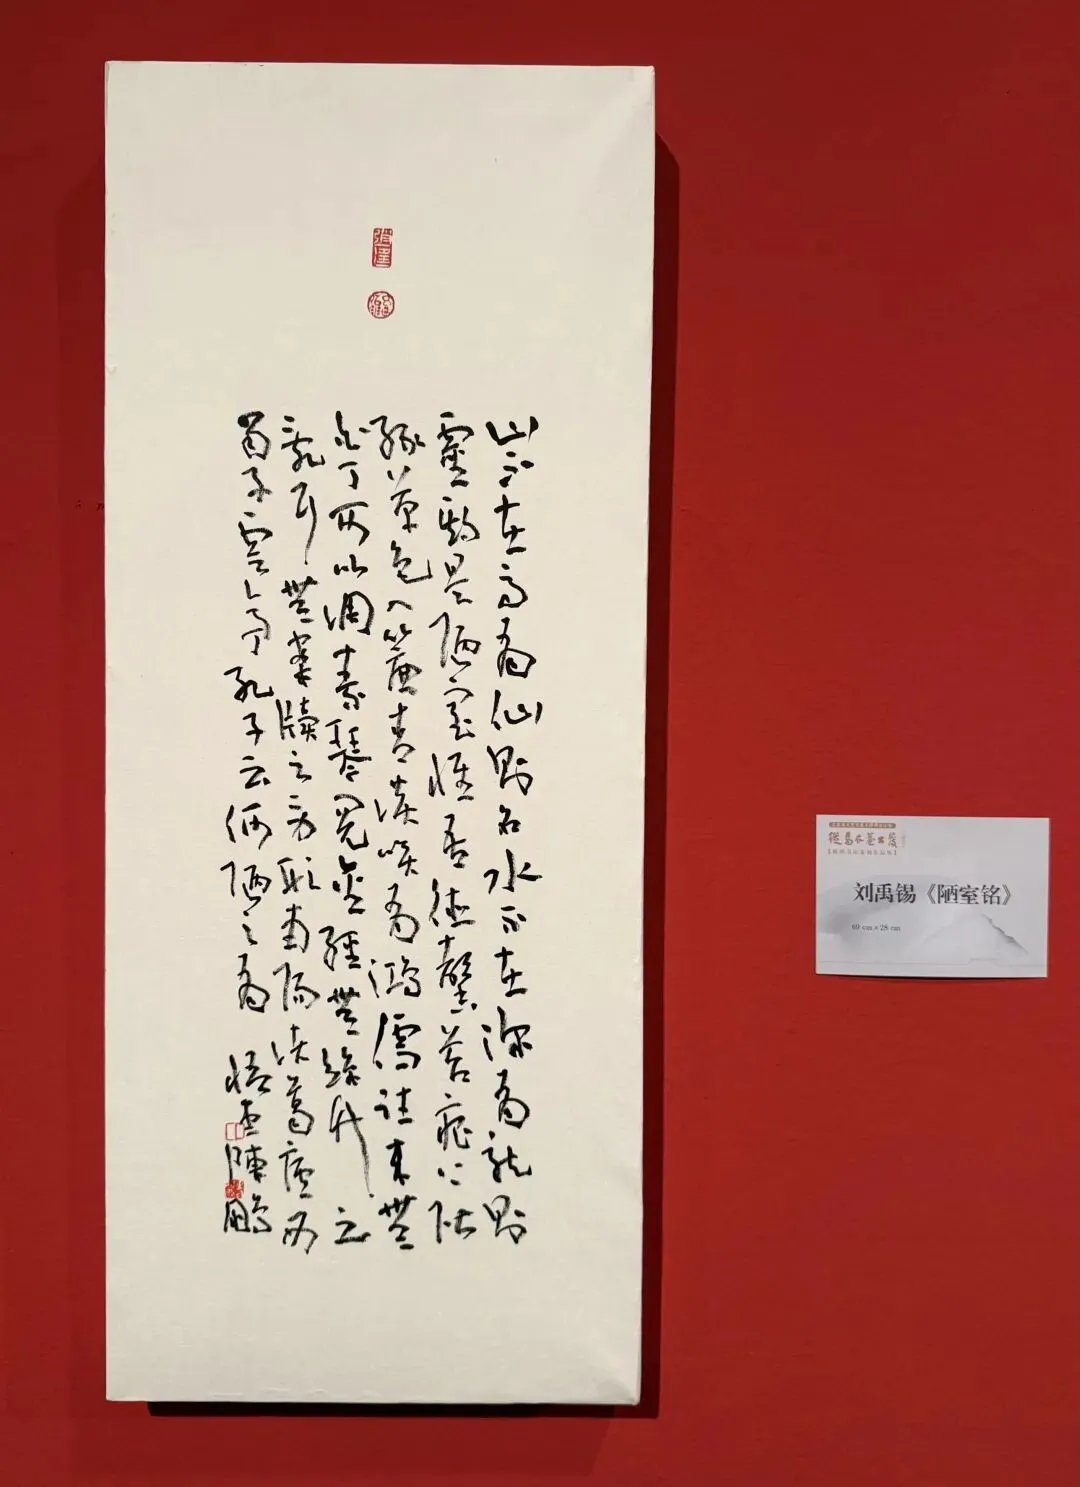 山不在高有仙則名水不在深有龍則
靈斯是陋室惟吾德馨苔痕上階
綠草色入簾青談笑有鴻儒往來無
白丁可以調素琴閱金經無絲竹之
亂耳無案牘之勞形南陽諸葛廬西
蜀子雲亭孔子云何陋之有 陳鵬
刘禹锡《陋室铭》
60 cm×28 cm